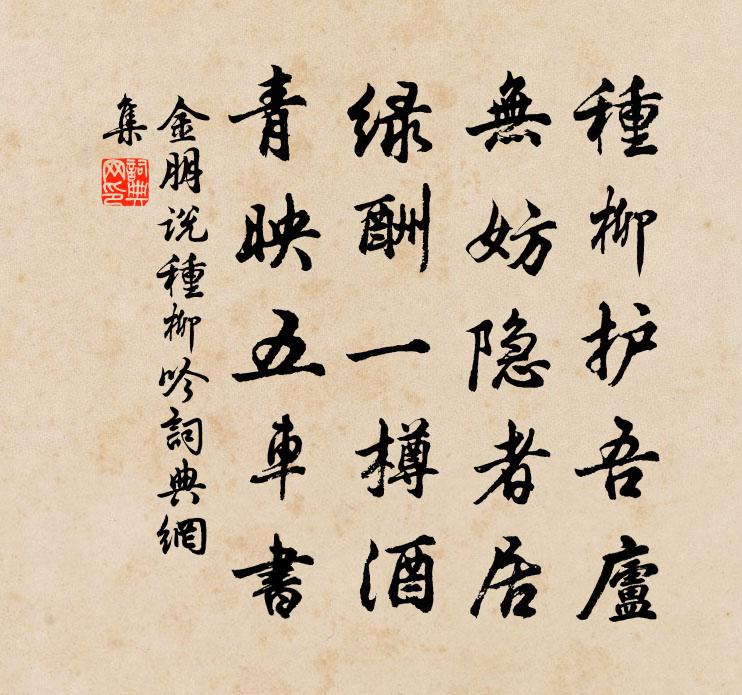 種柳护吾廬
無妨隐者居
緑酬一樽酒
青映五車書
金朋说種柳吟詞典網
集
詞典网印